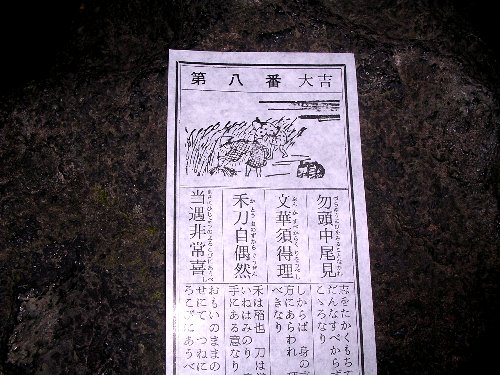 第八番 大吉
勿頭中尾見
文華須得理
禾刀自偶然
当遇非常喜
志をたかくもち
だんなすべからず
こゝろなり
しからば 身の
方にあらわれ
べきなり
禾は稲也 刀は
いねはみのり
手にある意なり
おもいのままの
せにて つねに
ろこびにあうべ